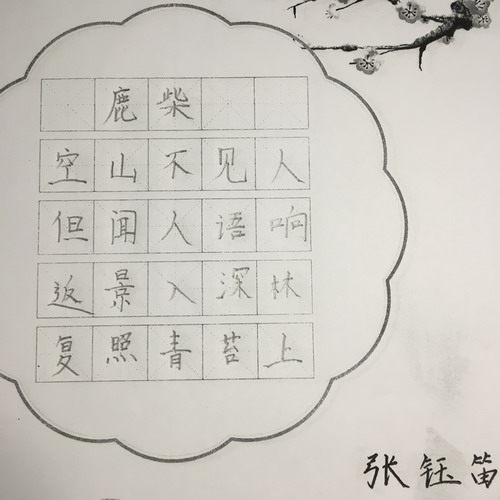 鹿柴
空山不见人
但闻人语响
返景入深林
复照青苔上
张钰笛